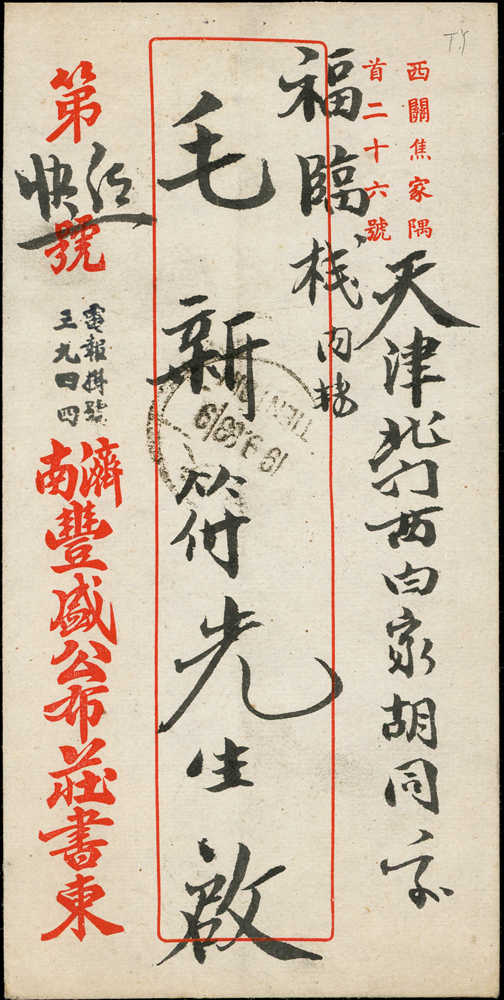 西關焦家隅
首二十六號
天津北門西白家胡同
福臨棧内
毛新符先生啟
第號
快信
電報掛號
三九四四
濟南
豐盛公布莊書柬